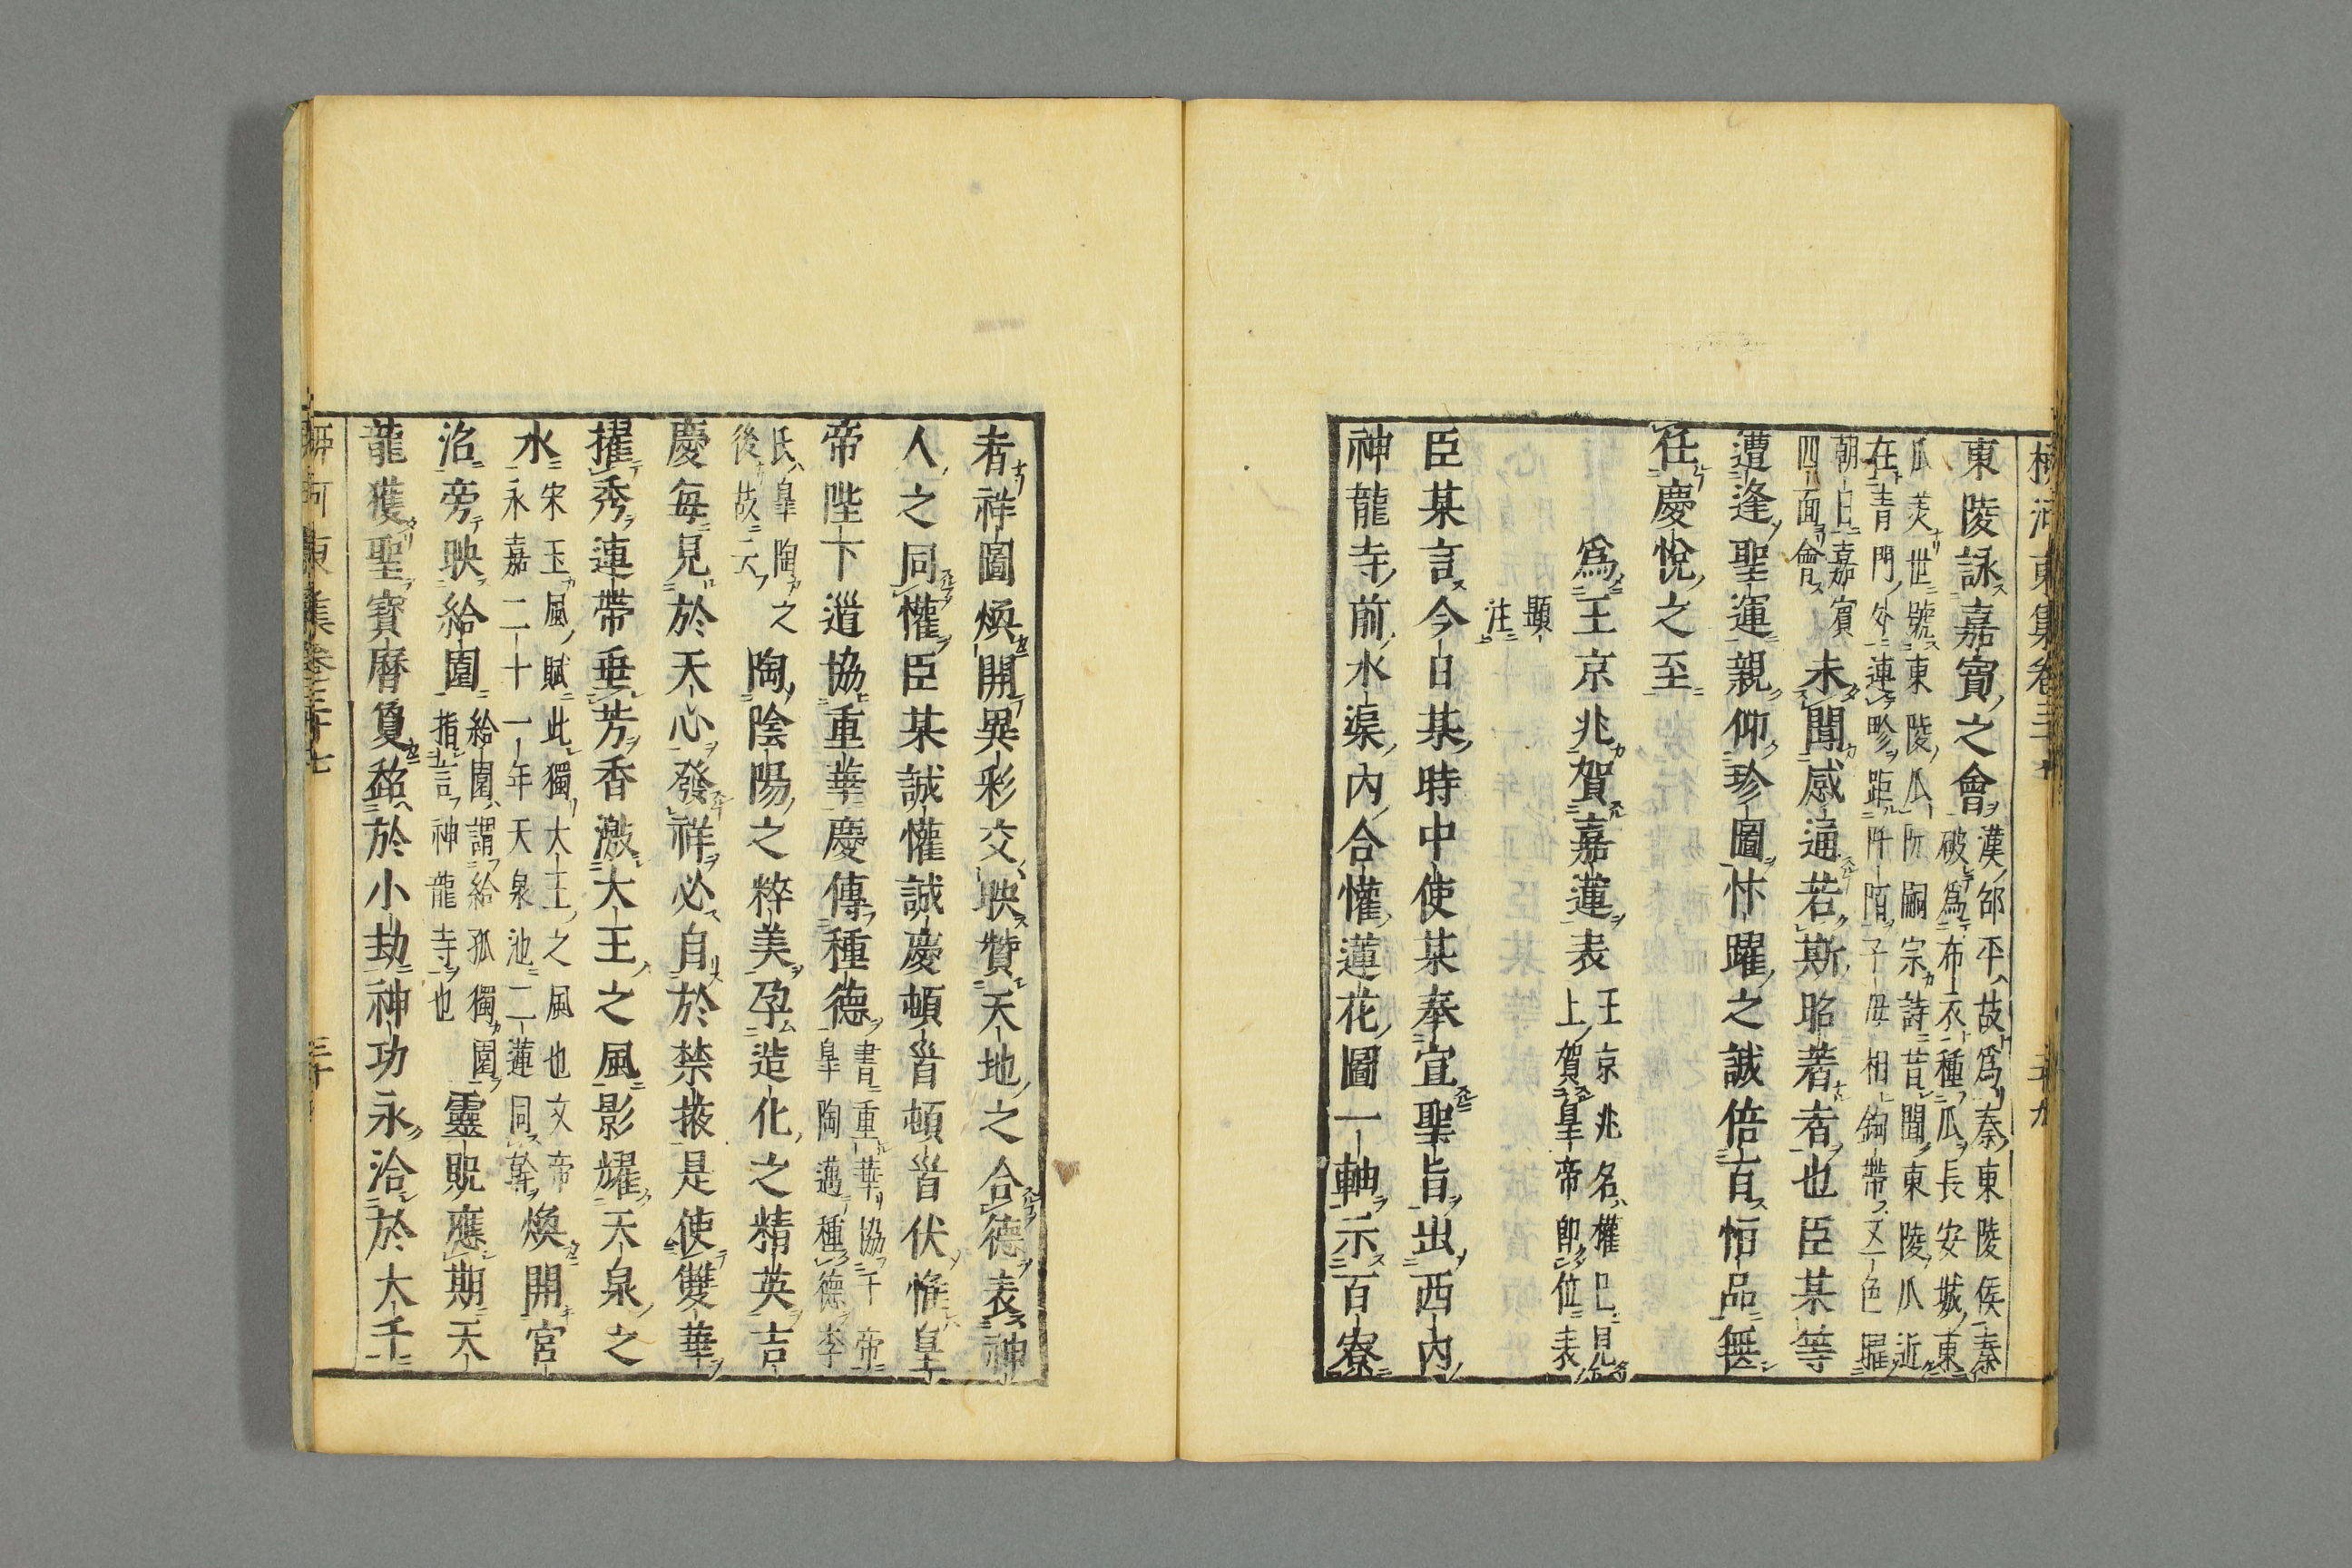 柳河東集卷三十七 二十九
東陵詠嘉賓之會漢邵平故爲秦東陵侯秦
破爲布衣種瓜長安城東
瓜美世號東陵瓜阮嗣宗詩昔聞東陵瓜近
在青門外連畛距阡陌子母相鉤帶五色曜
朝日嘉賓
四面會未聞感通若斯昭著者也臣某等
遭逢聖運親仰珍圖忭躍之誠倍百恒品無
任慶悅之至
爲王京兆賀嘉蓮表王京兆名權已見
上賀皇帝即位表
題
注
臣某言今日某時中使某奉宣聖旨出西內
神龍寺前水渠內合懽蓮花圖一軸示百寮
者祥圖煥開異彩交映贊天地之合德表神
人之同懽臣某誠懽誠慶頓首頓首伏惟皇
帝陛下道協重華慶傳種德書重華協于帝
皐陶邁種德李
氏皐陶之
後故云陶陰陽之粹美孕造化之精英吉
慶每見於天心發祥必自於禁掖是使雙華
擢秀連帶垂芳香激大王之風影耀天泉之
水宋玉風賦此獨大王之風也文帝
永嘉二十一年天泉池二蓮同幹煥開宮
沼旁映給園給園謂給孤獨園
指言神龍寺也靈貺應期天
龍獲聖寶曆夐超於小劫神功永洽於大千
柳河東集卷三十七 三十